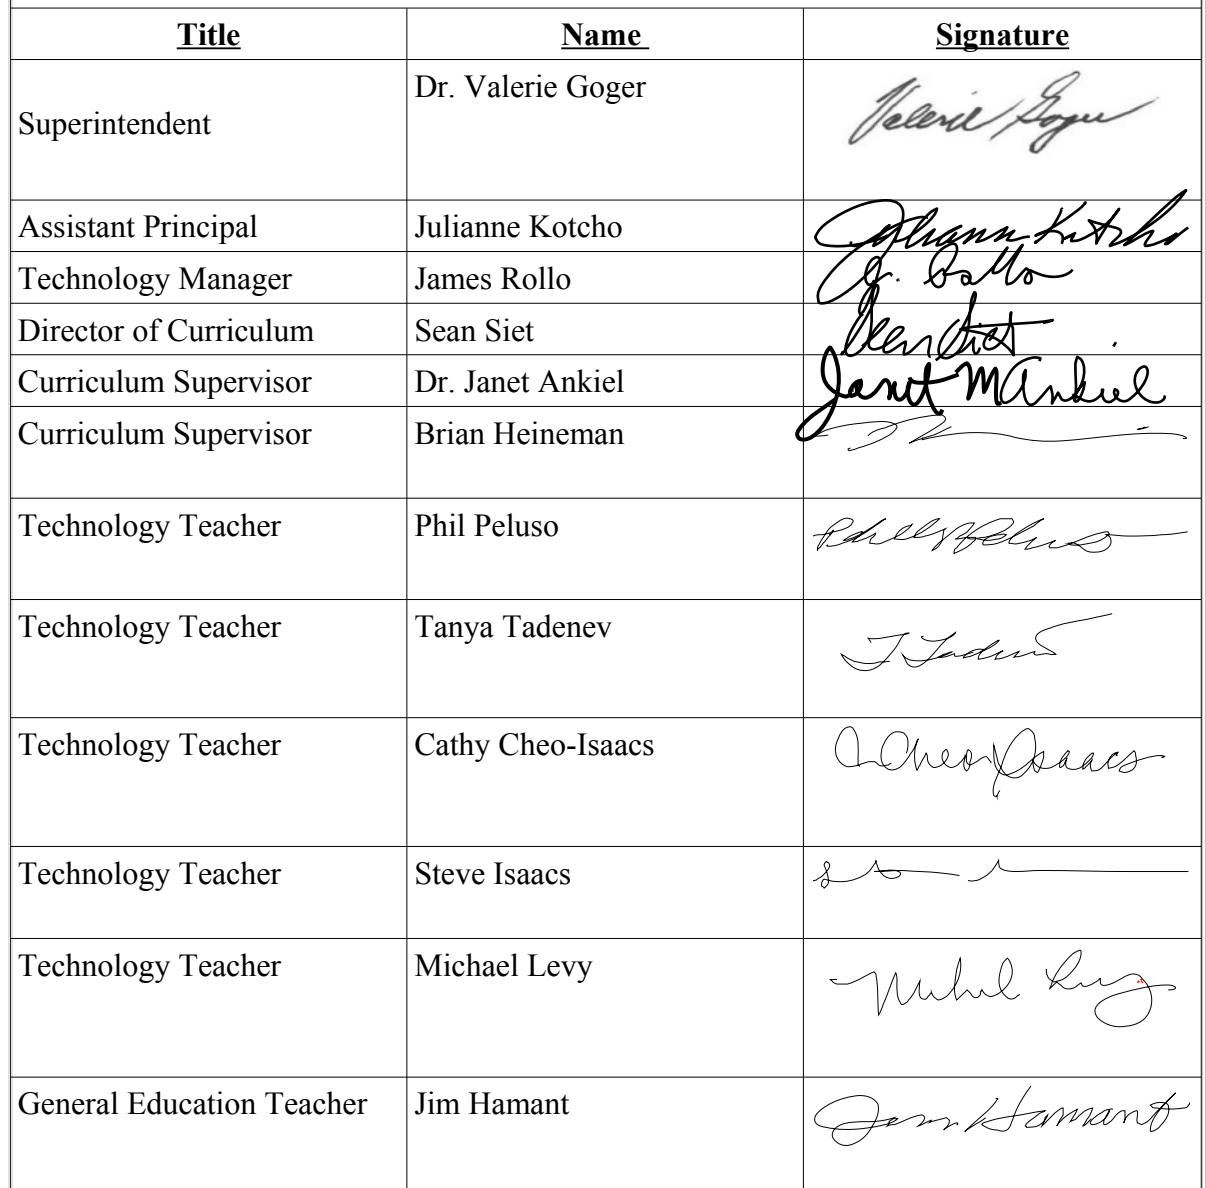 Title Name Signature
Dr. Valerie Goger
Superintendent Valerie Goger
Assistant Principal Julianne Kotcho Juliann Kotcho
Technology Manager James Rollo J. Rollo
Director of Curriculum Sean Siet Sean Siet
Curriculum Supervisor Dr. Janet Ankiel Janet M Ankiel
Curriculum Supervisor Brian Heineman
Technology Teacher Phil Peluso Peluso
Technology Teacher Tanya Tadenev T. Tadenev
Technology Teacher Cathy Cheo-Isaacs C Cheo-Isaacs
Technology Teacher Steve Isaacs
Technology Teacher Michael Levy Michael Levy
General Education Teacher Jim Hamant Jim Hamant